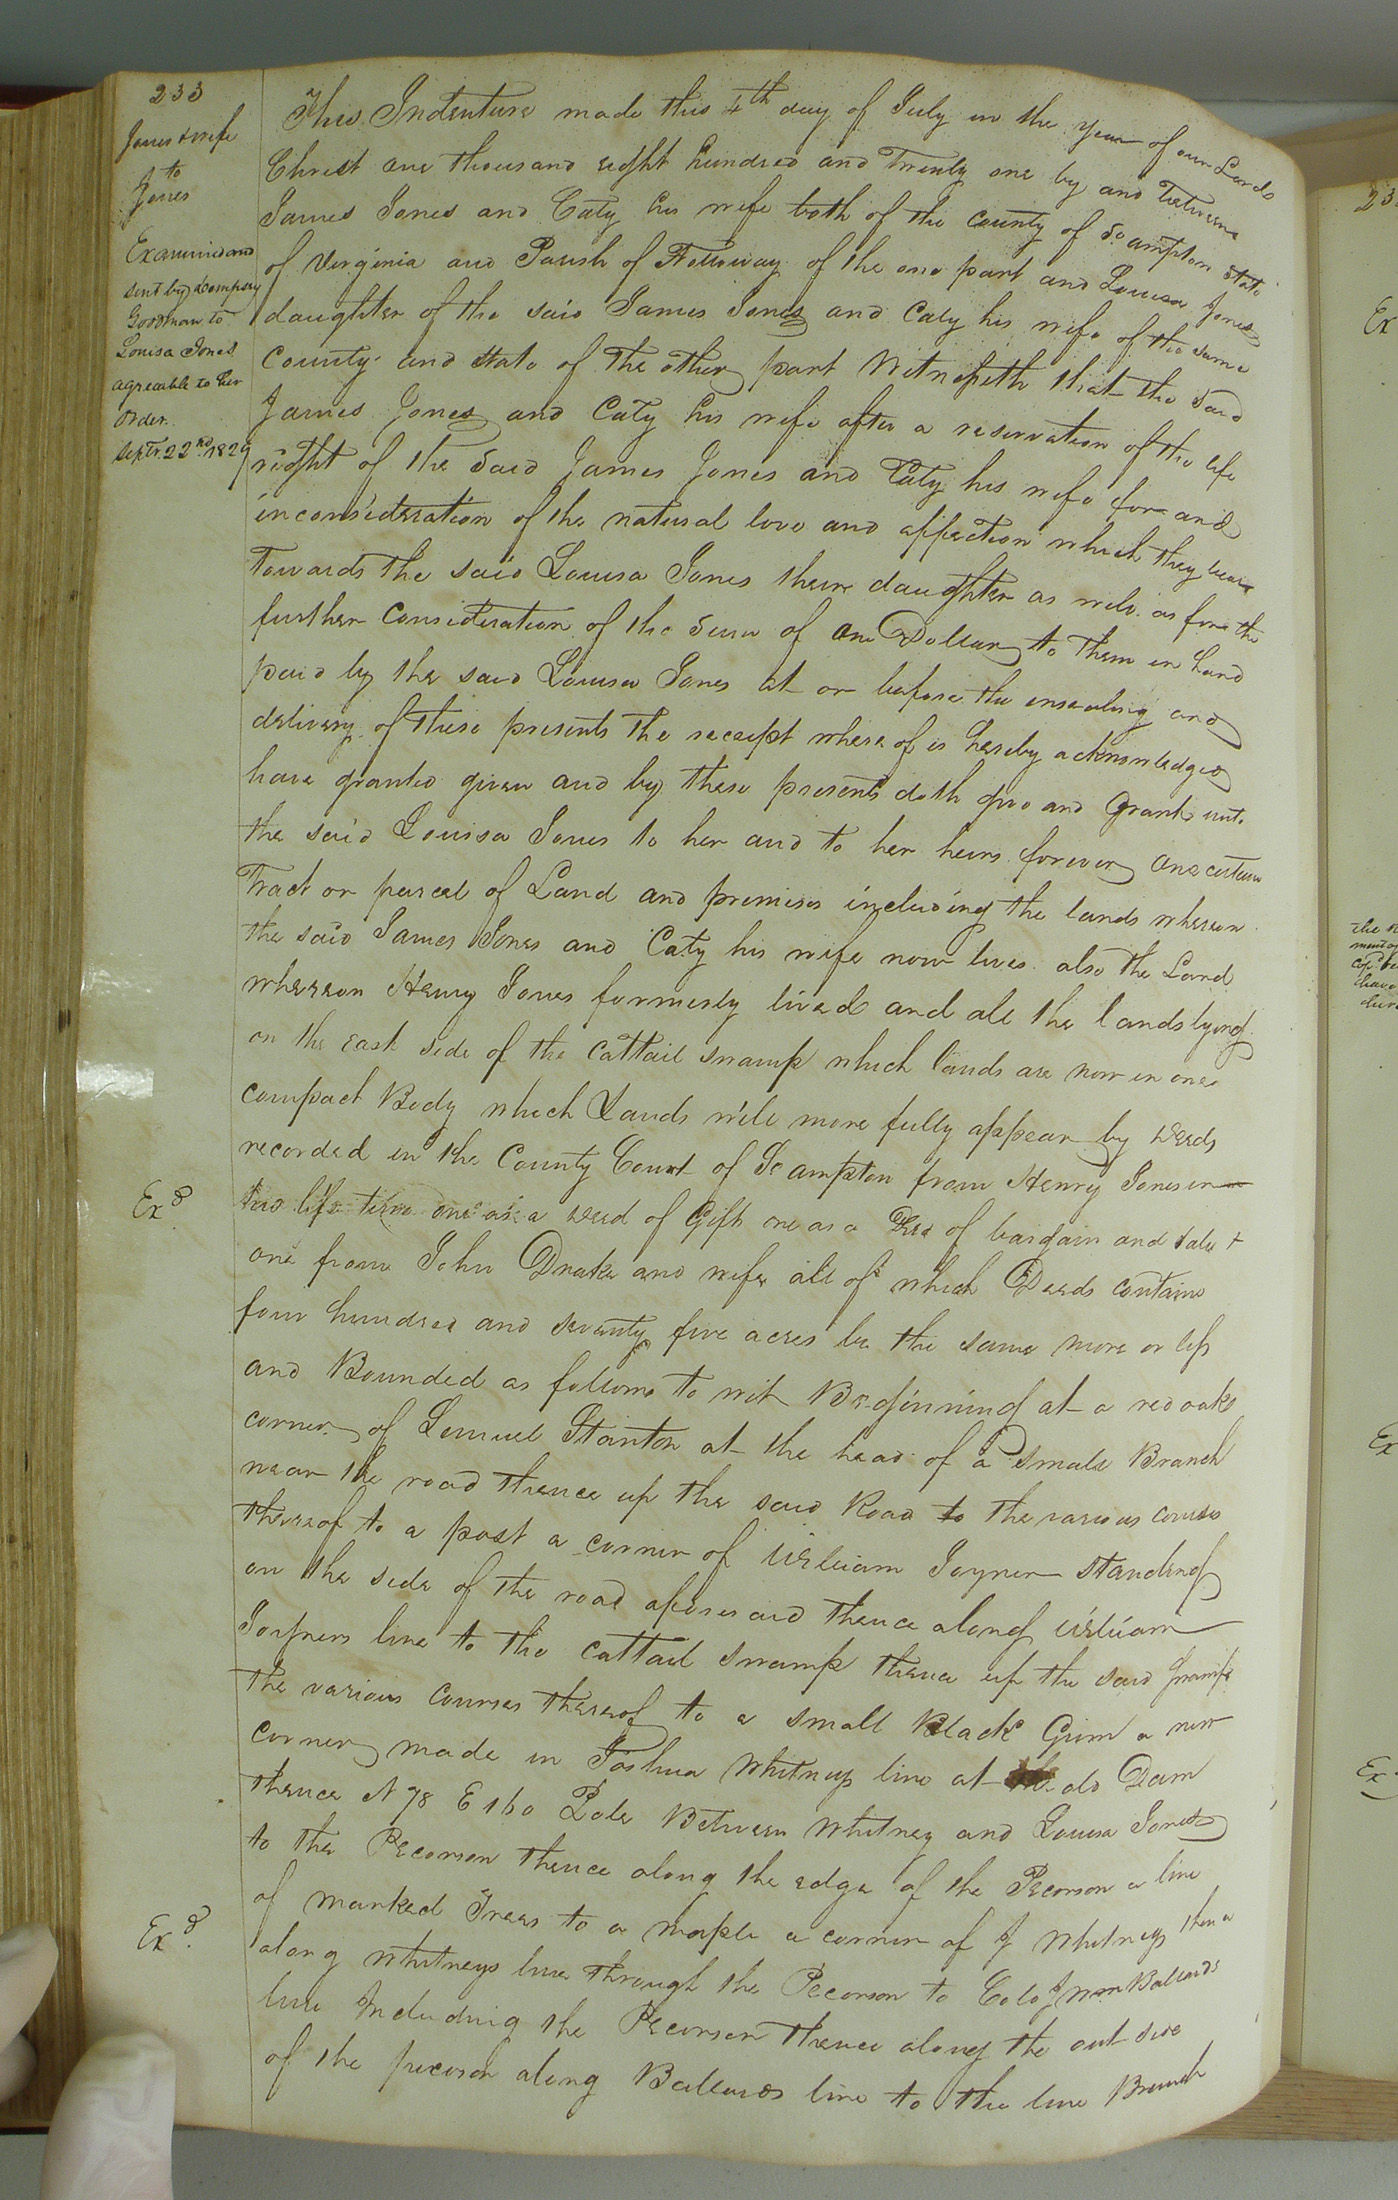 233
Jones & wife
to
Jones
Examined and
sent by Dempsey
Goodman to
Louisa Jones
agreeable to her
order
Septr. 22nd 1829
This Indenture made this 4th day of July in the year of our Lord
Christ one thousand eight hundred and Twenty one by and Between
James Jones and Caty his wife both of the county of So.ampton State
of Virginia and Parish of of the one part and Louisa Jones
daughter of the said James Jones and Caty his wife of the same
County and State of The other part Witnesseth that the said
James Jones and Caty his wife after a reservation of the life
right of the said James Jones and Caty his wife for and
inconsideration of the natural love and affection which they bear
Towards the said Louisa Jones there daughter as well as for the
further consideration of the sum of one Dollar to Them in hand
paid by the said Louisa Jones at or before the ensealing and
delivery of these presents the receipt whereof is hereby acknowledged
have granted given and by these presents doth give and Grant unto
the said Louisa Jones to her and to her heirs forever one certain
Tract or parcel of Land and premises including the lands whereon
the said James Jones and Caty his wife now lives also the Land
whereon Henry Jones formerly lived and all the lands lying
on the East side of the Cattail swamp which lands are now in one
compact Body which Lands will more fully appear by Deeds
recorded in the County Court of So ampton from Henry Jones in
his life time one as a Deed of Gift one as a Deed of bargain and sale +
one from John Drake and wife all of which Deeds contains
four hundred and seventy five acres be the same more or less
and Bounded as follows to wit Beginning at a red oak
corner of Lemuel Stanton at the head of a small Branch
near the road thence up the said Road to the various courses
thereof to a post a corner of William Joyner standing
on the side of the road aforesaid thence along William
Joyners line to the Cattail swamp thence up the said swamp
the various courses thereof to a small Black Gum a new
corner made in Joshua Whitneys line at old Dam
thence N 78 E 160 Poles Between Whitney and Louisa Jones
to the Pecorson thence along the edge of the Pecorson a line
of marked Trees to a maple a corner of J Whitneys thence
along Whitneys line through the Pecorson to Colo Ballards
line Including the Pecorson thence along the out side
of the pecorson along Ballards line to the line Branch
Exd
Exd.
23
Ex
the
Ex
Ex